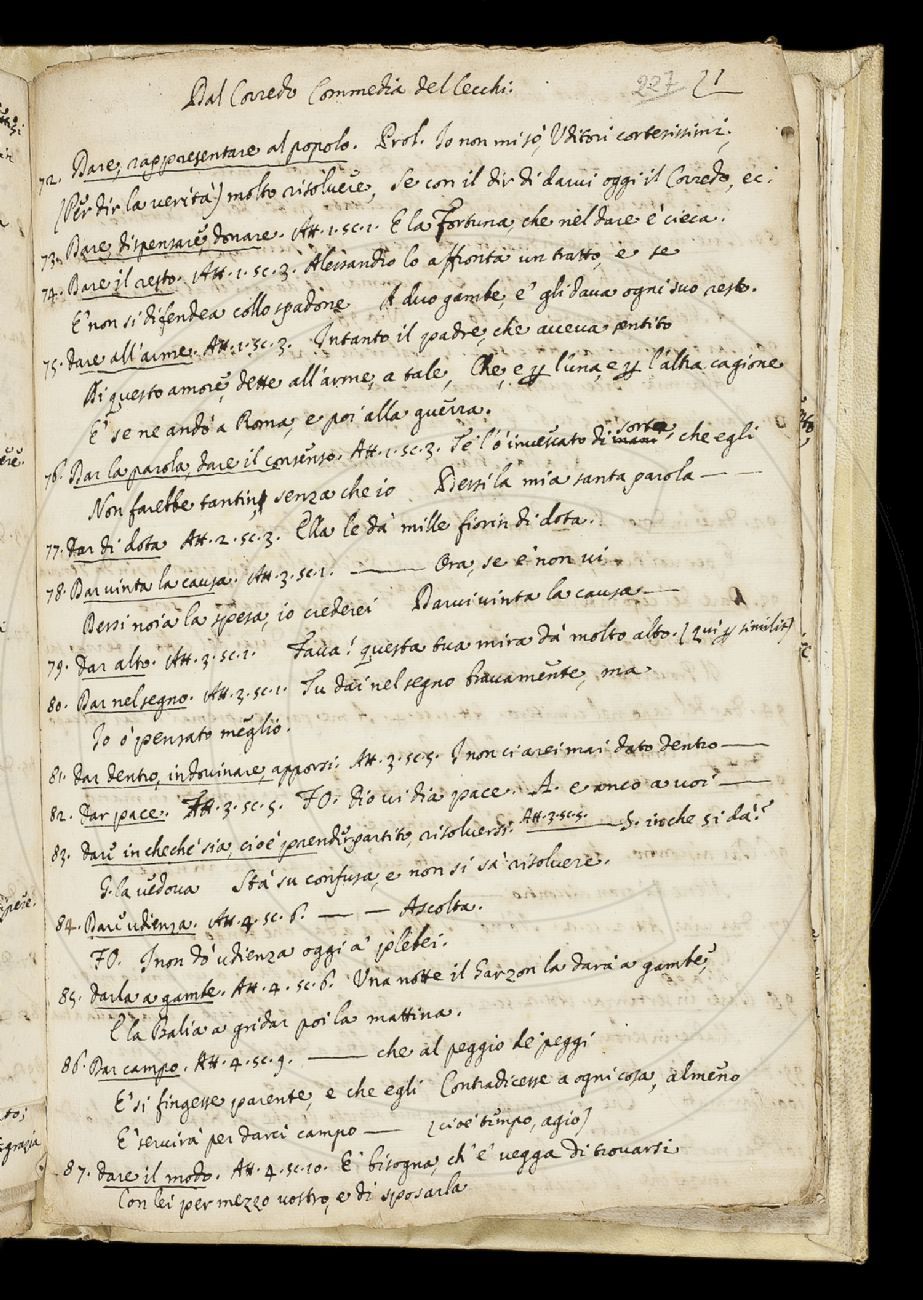 Dal Corredo Commedia del Cecchi. 227 21
72. Dare, rappresentare al popolo. Prol. Io non mi sò, Uditori cortesissimi,
(Per dir la verità) molto risolvere, Se con il dir di darvi oggi il Corredo, ec:
73. Dare, dispensare, donare. Att. 1. sc. 1. E la Fortuna, che nel dare è cieca.
74. Dare il resto. Att. 1. sc. 3. Alessandro lo affronta un tratto, e se
E' non si difendea collo spadone A duo gambe, e' gli dava ogni suo resto.
75. Dare all'arme. Att. 1. sc. 3. Intanto il padre, che aveva sentito
Di questo amore, dette all'arme, a tale, Che, e p l'una, e p l'altra cagione
E' se ne andò a Roma, e poi alla guerra.
76. Dar la parola, dare il consenso. Att. 1. sc. 3. Te l'ò invescato di sorte, che egli
Non farebbe tantino senza che io Dessi la mia santa parola ——
77. Dar di dota Att. 2. sc. 3. Ella le dà mille fiorin di dota.
78. Dar vinta la causa. Att. 3. sc. 1. —— Ora, se e' non vi
Dessi noia la spesa, io crederei Darvi vinta la causa —
79. Dar alto. Att. 3. sc. 1. Faccia! questa tua mira dà molto alto. (qui p similit)
80. Dar nel segno. Att. 3. sc. 1. Tu dai nel segno bravamente, ma
Io ò pensato meglio.
81. Dar dentro, indovinare, apporsi. Att. 3. sc. 5. I non ci arei mai dato dentro ——
82. Dar pace. Att. 3. sc. 5. FO. Dio vi dia pace. A. e anco a voi ——
83. Dare in cheche sia, cioè prender partito, risolversi. Att. 3. sc. 5. —— S. in che si dà?
G. la vedova Stà su confusa, e non si sà risolvere.
84. Dare udienza. Att. 4. sc. 6. — — Ascolta.
FO. I non dò udienza oggi a' plebei.
85. Darla a gambe. Att. 4. sc. 6. Una notte il Garzon la darà a gambe,
E la Balia a gridar poi la mattina.
86. Dar campo. Att. 4. sc. 9. —— che al peggio de' peggi
E' si fingesse parente, e che egli Contradicesse a ogni cosa, almeno
E' servirà per darci campo — (cioè tempo, agio)
87. Dare il modo. Att. 4. sc. 10. E' bisogna, ch' e' vegga di trovarsi
Con lei per mezzo vostro, e di sposarla